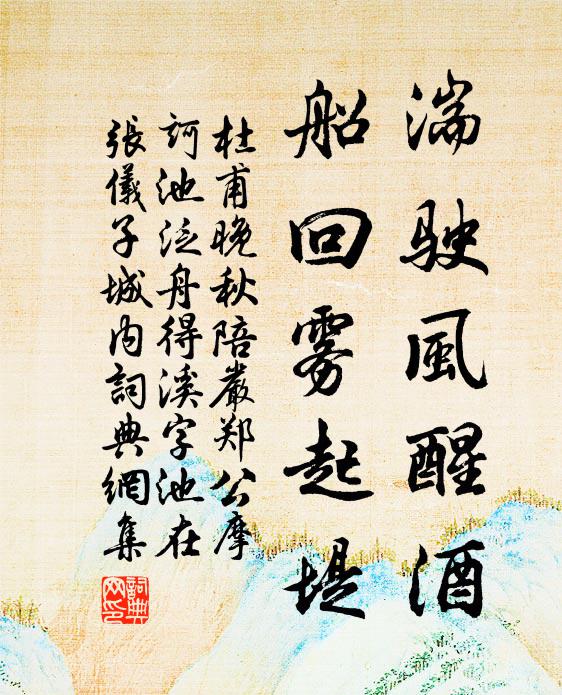 湍駛風醒酒
船回雾起堤
杜甫晚秋陪嚴郑公摩
訶池泛舟得溪字池在
張儀子城内詞典網集
詞典
网印